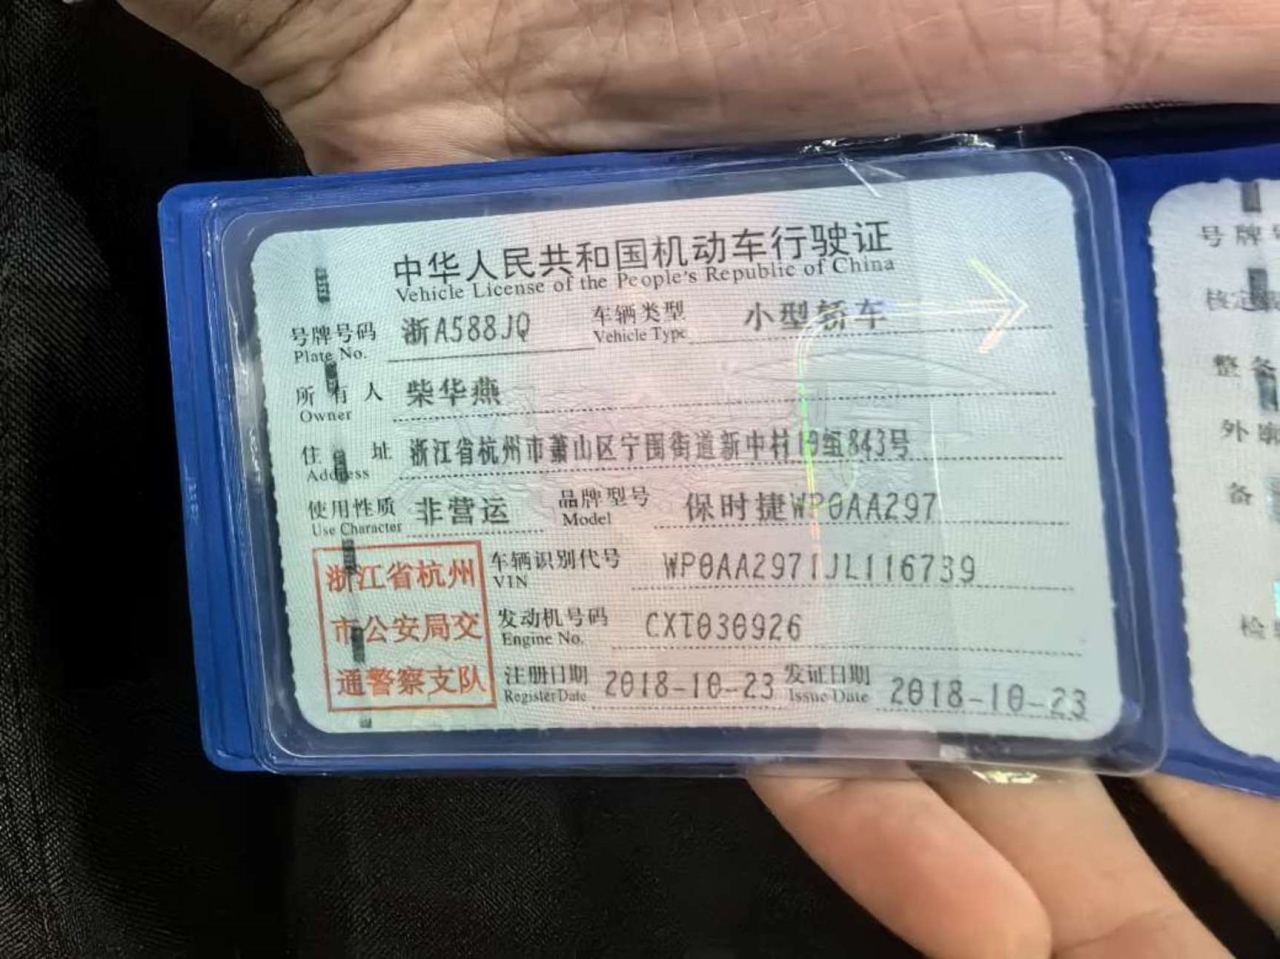 中华人民共和国机动车行驶证
Vehicle License of the People's Republic of China
号牌号码 浙A588JQ 车辆类型 小型轿车
Plate No. Vehicle Type
所有人 柴华燕
Owner
住址 浙江省杭州市萧山区宁围街道新中村19组843号
Address
使用性质 非营运 品牌型号 保时捷WP0AA297
Use Character Model
浙江省杭州
市公安局交
通警察支队
车辆识别代号 WP0AA2971JL116739
VIN
发动机号码 CXT030926
Engine No.
注册日期 2018-10-23 发证日期 2018-10-23
Register Date Issue Date
号牌
核定
整备
外
备
检